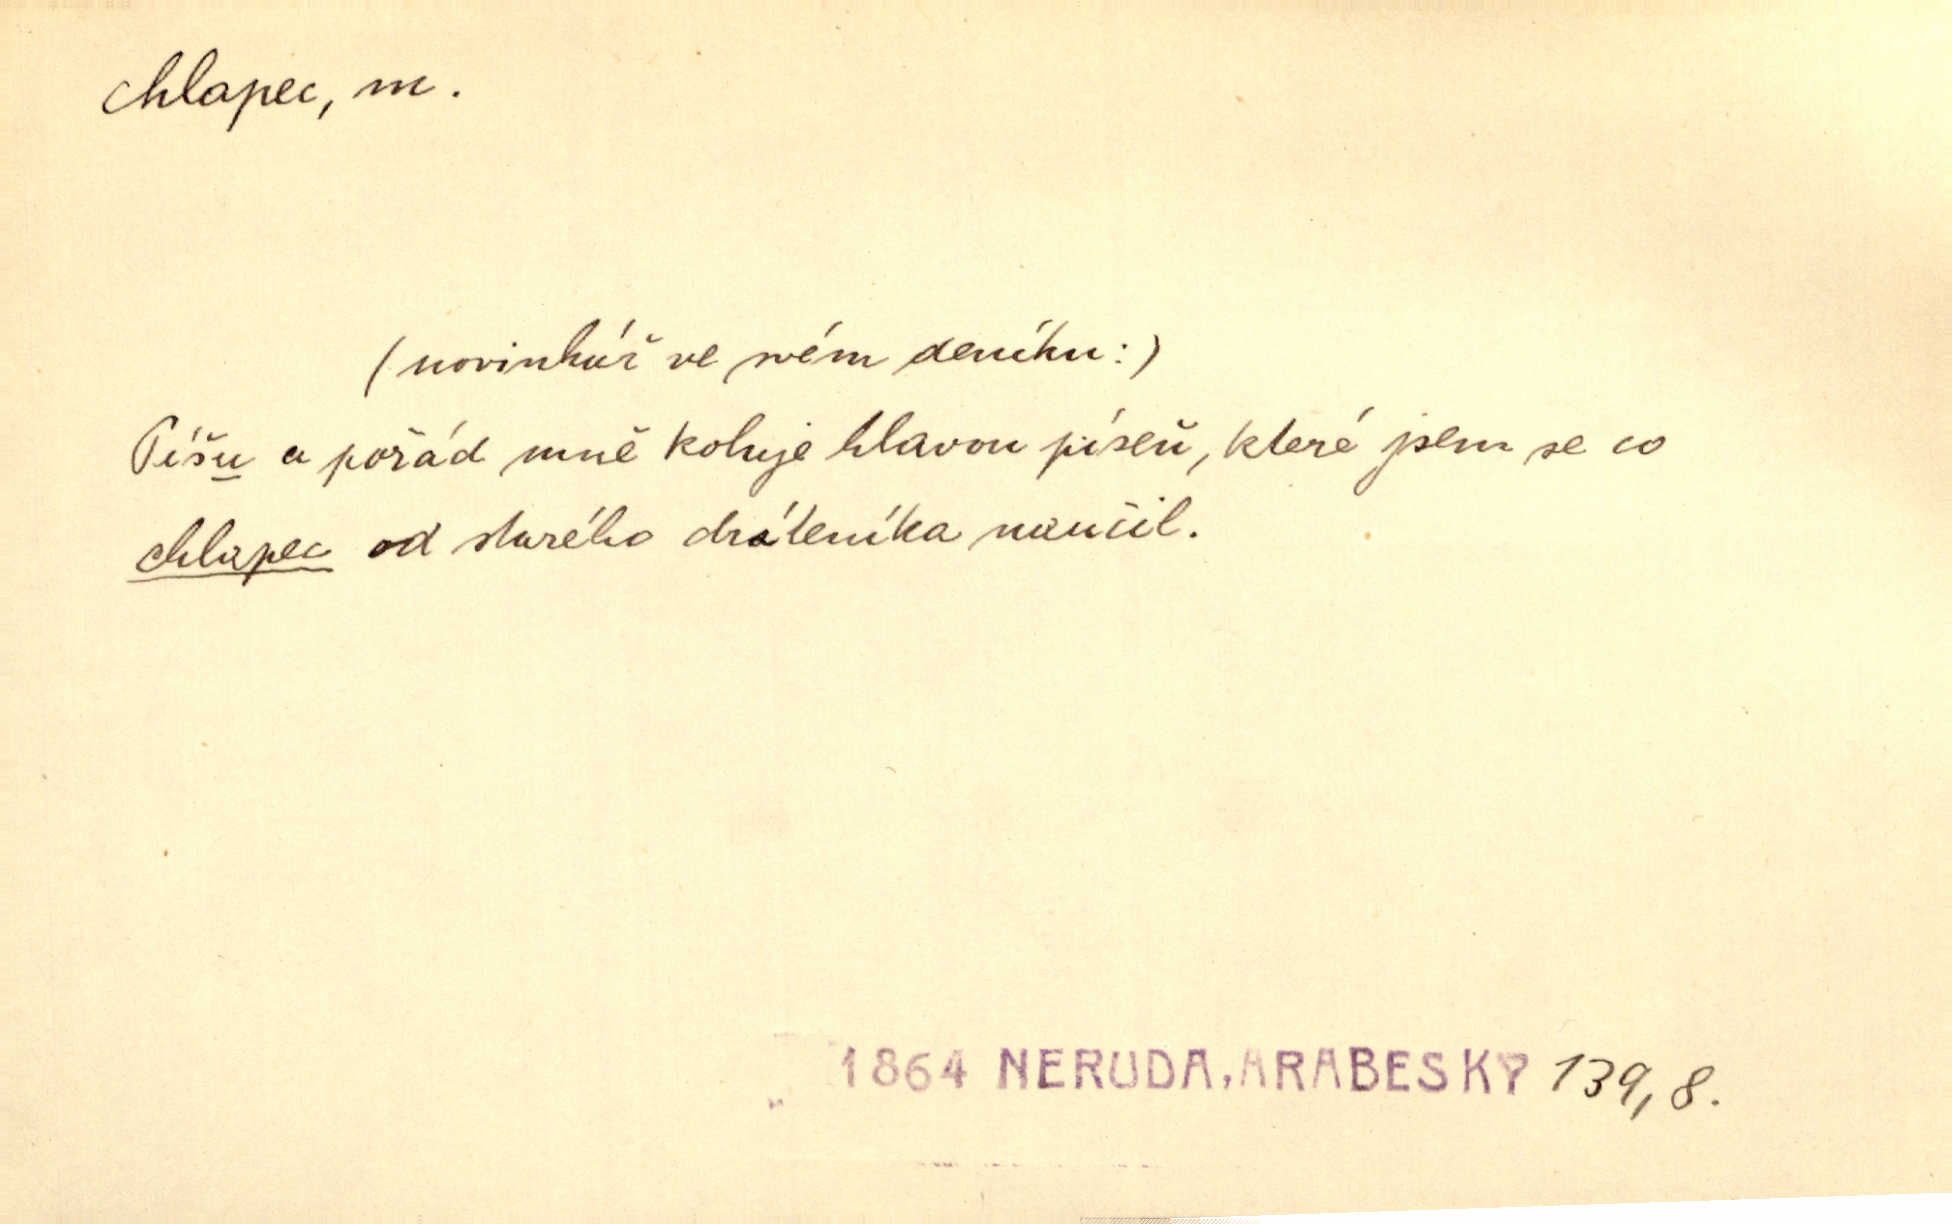 chlapec, m.
(novinkář ve svém deníku:)
Píšu a pořád mně koluje hlavou píseň, které jsem se co
chlapec od starého dráteníka naučil.
1864 NERUDA, ARABESKY 139, 8.